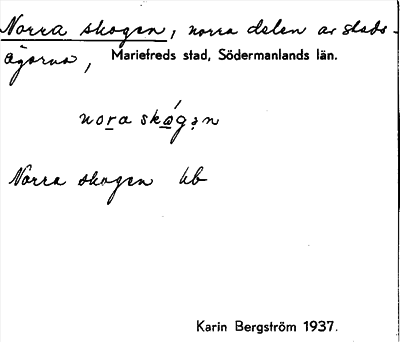 Norra skogen, norra delen av stads-
ägorna, Mariefreds stad, Södermanlands län.
nora skógən
Norra skogen kb
Karin Bergström 1937.